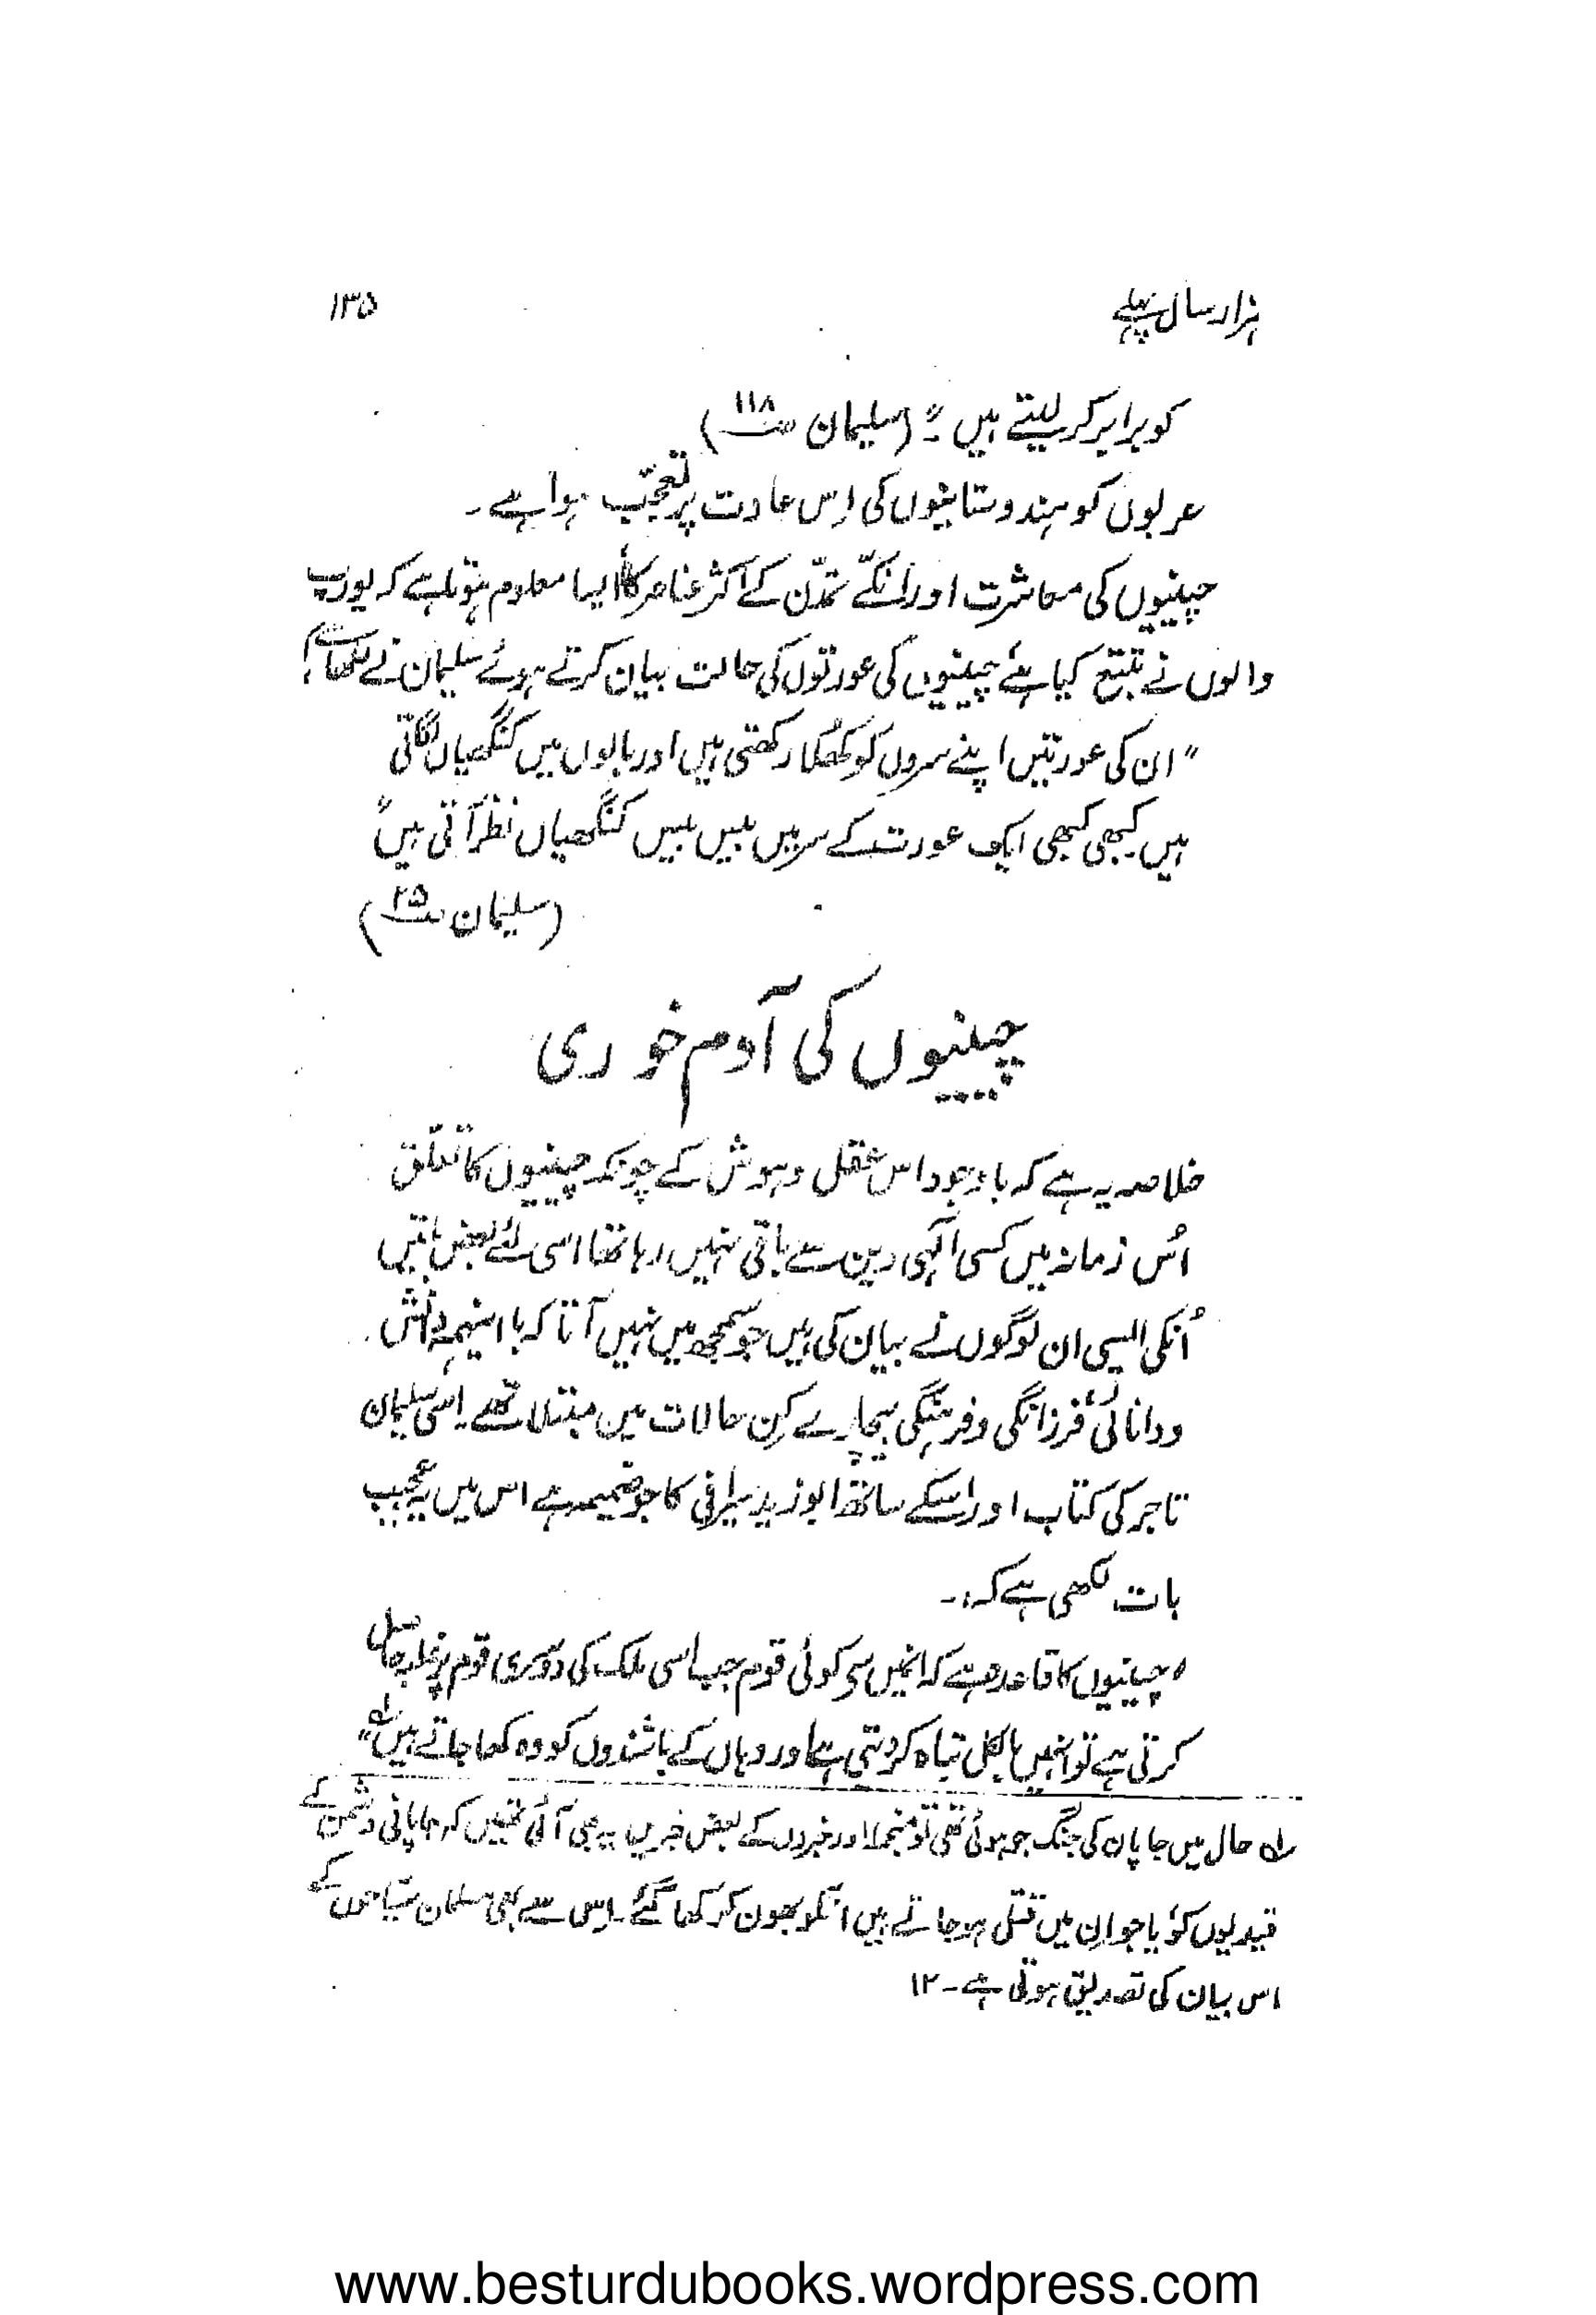 ہزار سال پہلے ۱۳۵
کو برابر کر لیتے ہیں"۔ (سلیمان ص۱۱۸)
عربوں کو ہندوستانیوں کی اِس عادت پر تعجّب ہوا ہے۔
چینیوں کی معاشرت اور اُنکے تمدّن کے اکثر عناصر کا ایسا معلوم ہوتا ہے کہ یورپ
والوں نے تتبّع کیا ہے، چینیوں کی عورتوں کی حالت بیان کرتے ہوئے سلیمان نے لکھا ہے
"ان کی عورتیں اپنے سروں کو کھُلا رکھتی ہیں اور بالوں میں کنگھیاں لگاتی
ہیں کبھی کبھی ایک عورت کے سر میں بیس بیس کنگھیاں نظر آتی ہیں"
(سلیمان ص۲۵)
چینیوں کی آدم خوری
خلاصہ یہ ہے کہ باوجود اس عقل و ہوش کے چونکہ چینیوں کا تعلّق
اُس زمانہ میں کسی الٰہی دین سے باقی نہیں رہا تھا اسی لئے بعض باتیں
اُنکی ایسی ان لوگوں نے بیان کی ہیں جو سمجھ میں نہیں آتا کہ با اینہمہ دانش
و دانائی، فرزانگی و فرہنگی بیچارے کِن حالات میں مبتلا تھے۔ اِسی سلیمان
تاجر کی کتاب اور اسکے ساتھ ابوزید سیرافی کا جو ضمیمہ ہے اس میں یہ عجیب
بات لکھی ہے کہ:۔
"چینیوں کا قاعدہ ہے کہ انمیں سے کوئی قوم جب اسی ملک کی دوسری قوم پر غلبہ حاصل
کرتی ہے تو انہیں بالکل تباہ کر دیتی ہے اور وہاں کے باشندوں کو وہ کھا جاتے ہیں"لہ
لہ حال میں جاپان کی جنگ جو ہوئی تھی تو منجملہ اور خبروں کے بعض خبریں یہ بھی آئی تھیں کہ جاپانی دشمن کے
قیدیوں کو، یا جو ان میں قتل ہو جاتے ہیں انکو بھون کر کھا گئے۔ اِس سے بھی مسلمان سیّاحوں کے
اس بیان کی تصدیق ہوتی ہے۔ ۱۲
www.besturdubooks.wordpress.com